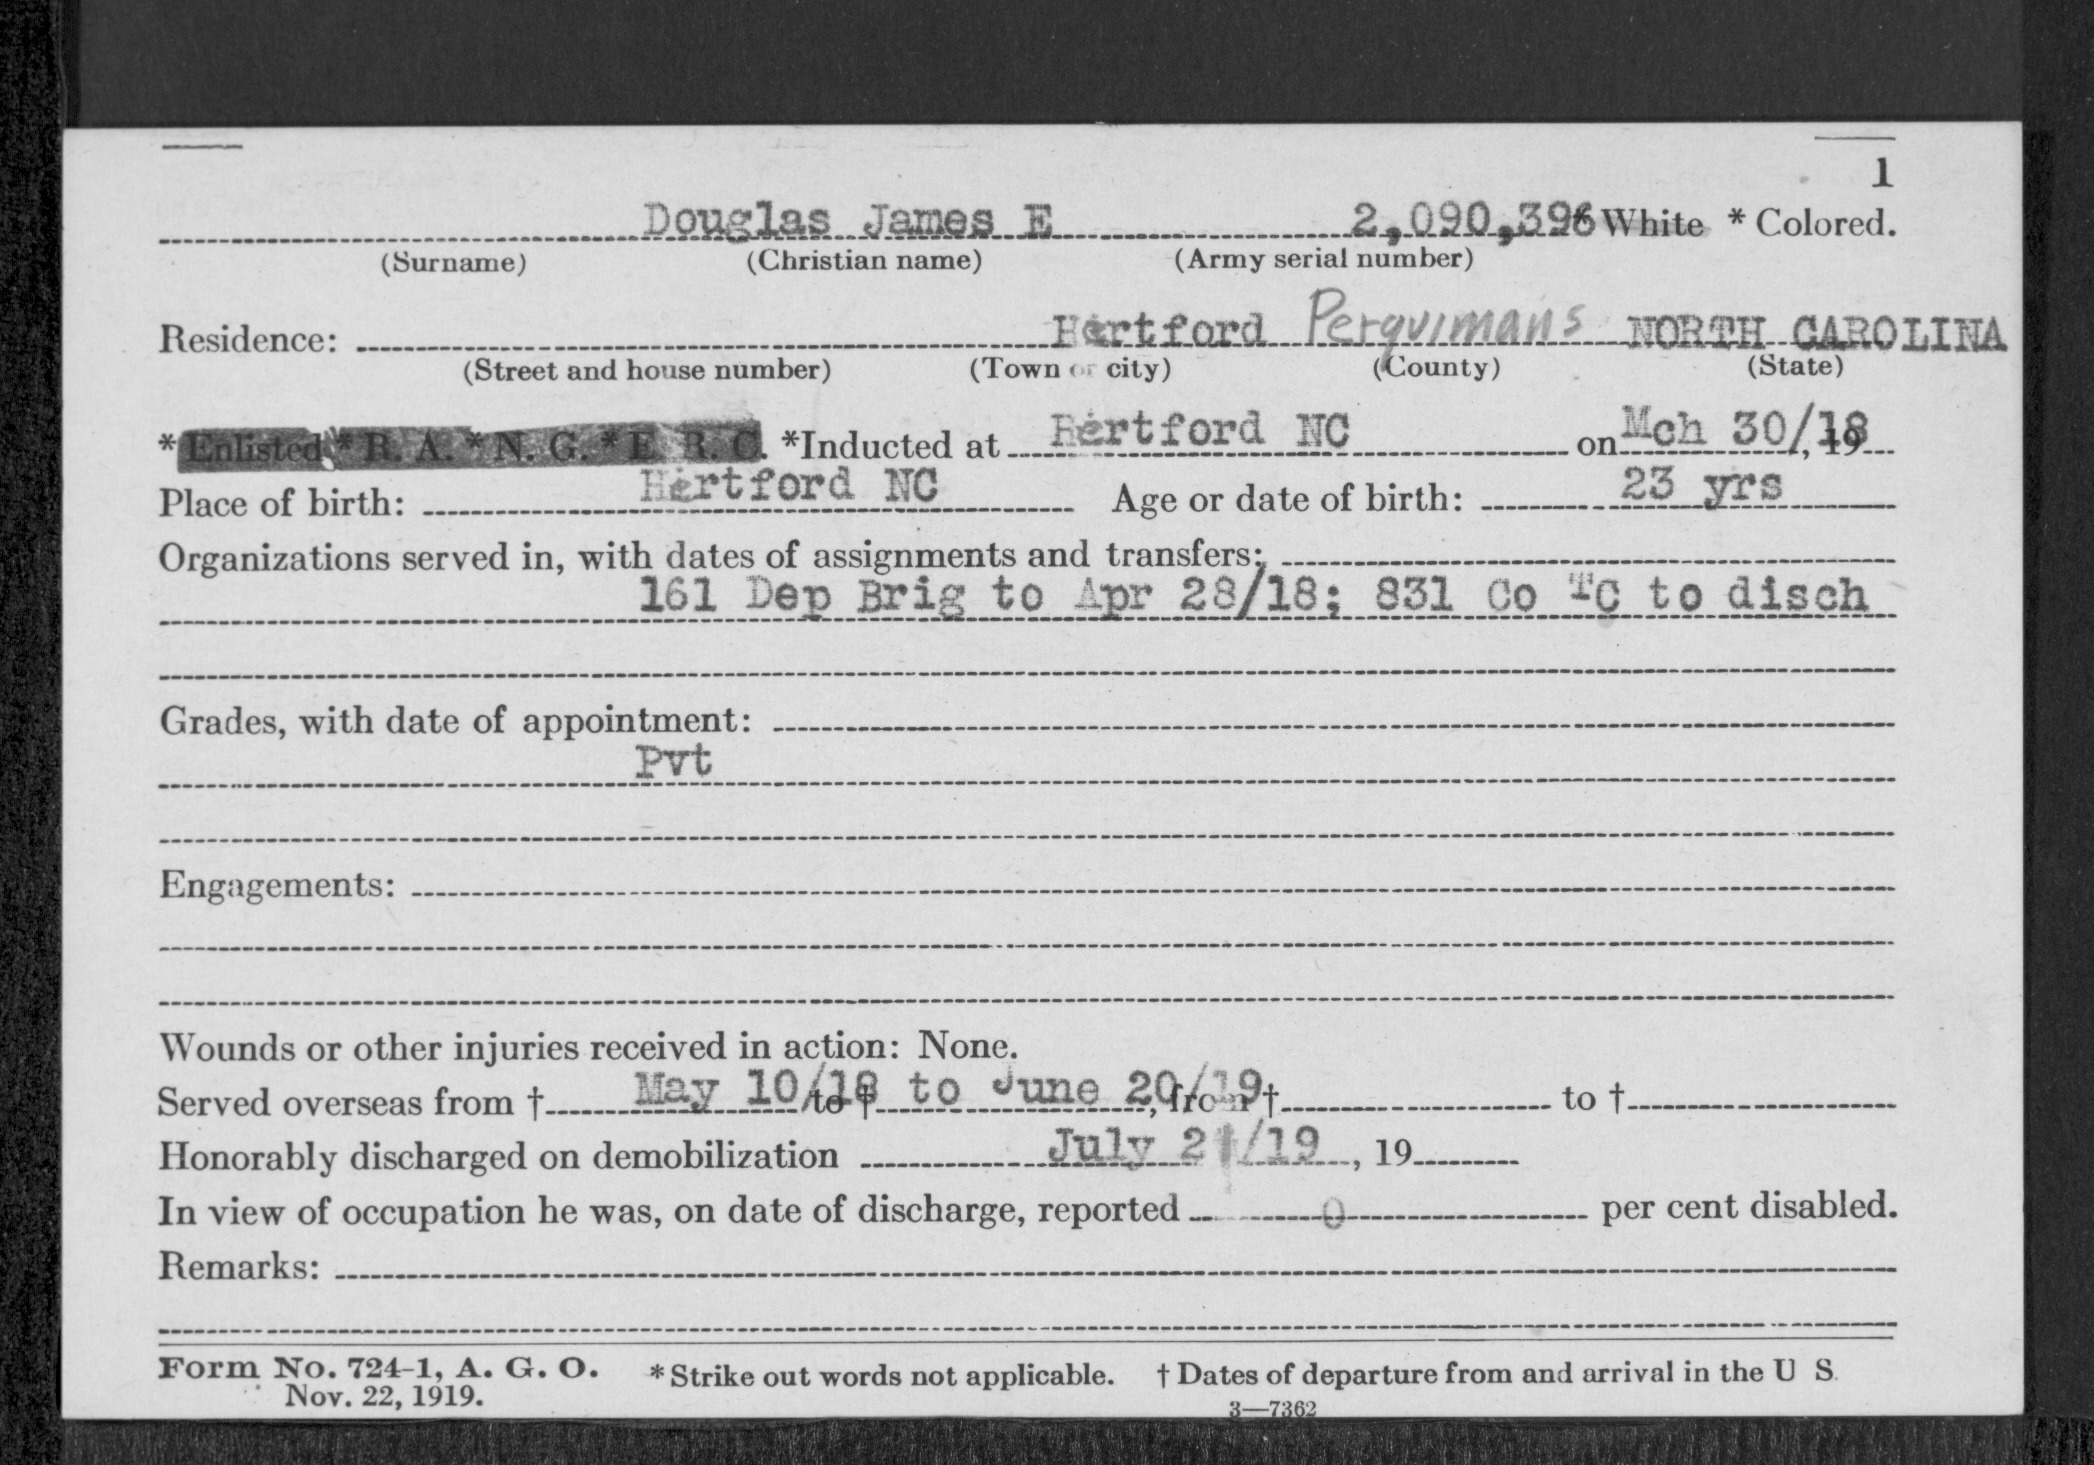 1
Douglas James E 2,090,396 * White * Colored.
(Surname) (Christian name) (Army serial number)
Residence: Hertford Perquimans NORTH CAROLINA
(Street and house number) (Town or city) (County) (State)
* Enlisted * R. A. * N. G. * E. R. C. *Inducted at Hertford NC on Mch 30/18, 19
Place of birth: Hertford NC Age or date of birth: 23 yrs
Organizations served in, with dates of assignments and transfers:
161 Dep Brig to Apr 28/18; 831 Co TC to disch
Grades, with date of appointment:
Pvt
Engagements:
Wounds or other injuries received in action: None.
Served overseas from † May 10/18 to † to June 20/19, from † to †
Honorably discharged on demobilization July 21/19, 19
In view of occupation he was, on date of discharge, reported 0 per cent disabled.
Remarks:
Form No. 724-1, A. G. O. * Strike out words not applicable. † Dates of departure from and arrival in the U S.
Nov. 22, 1919.
3—7362